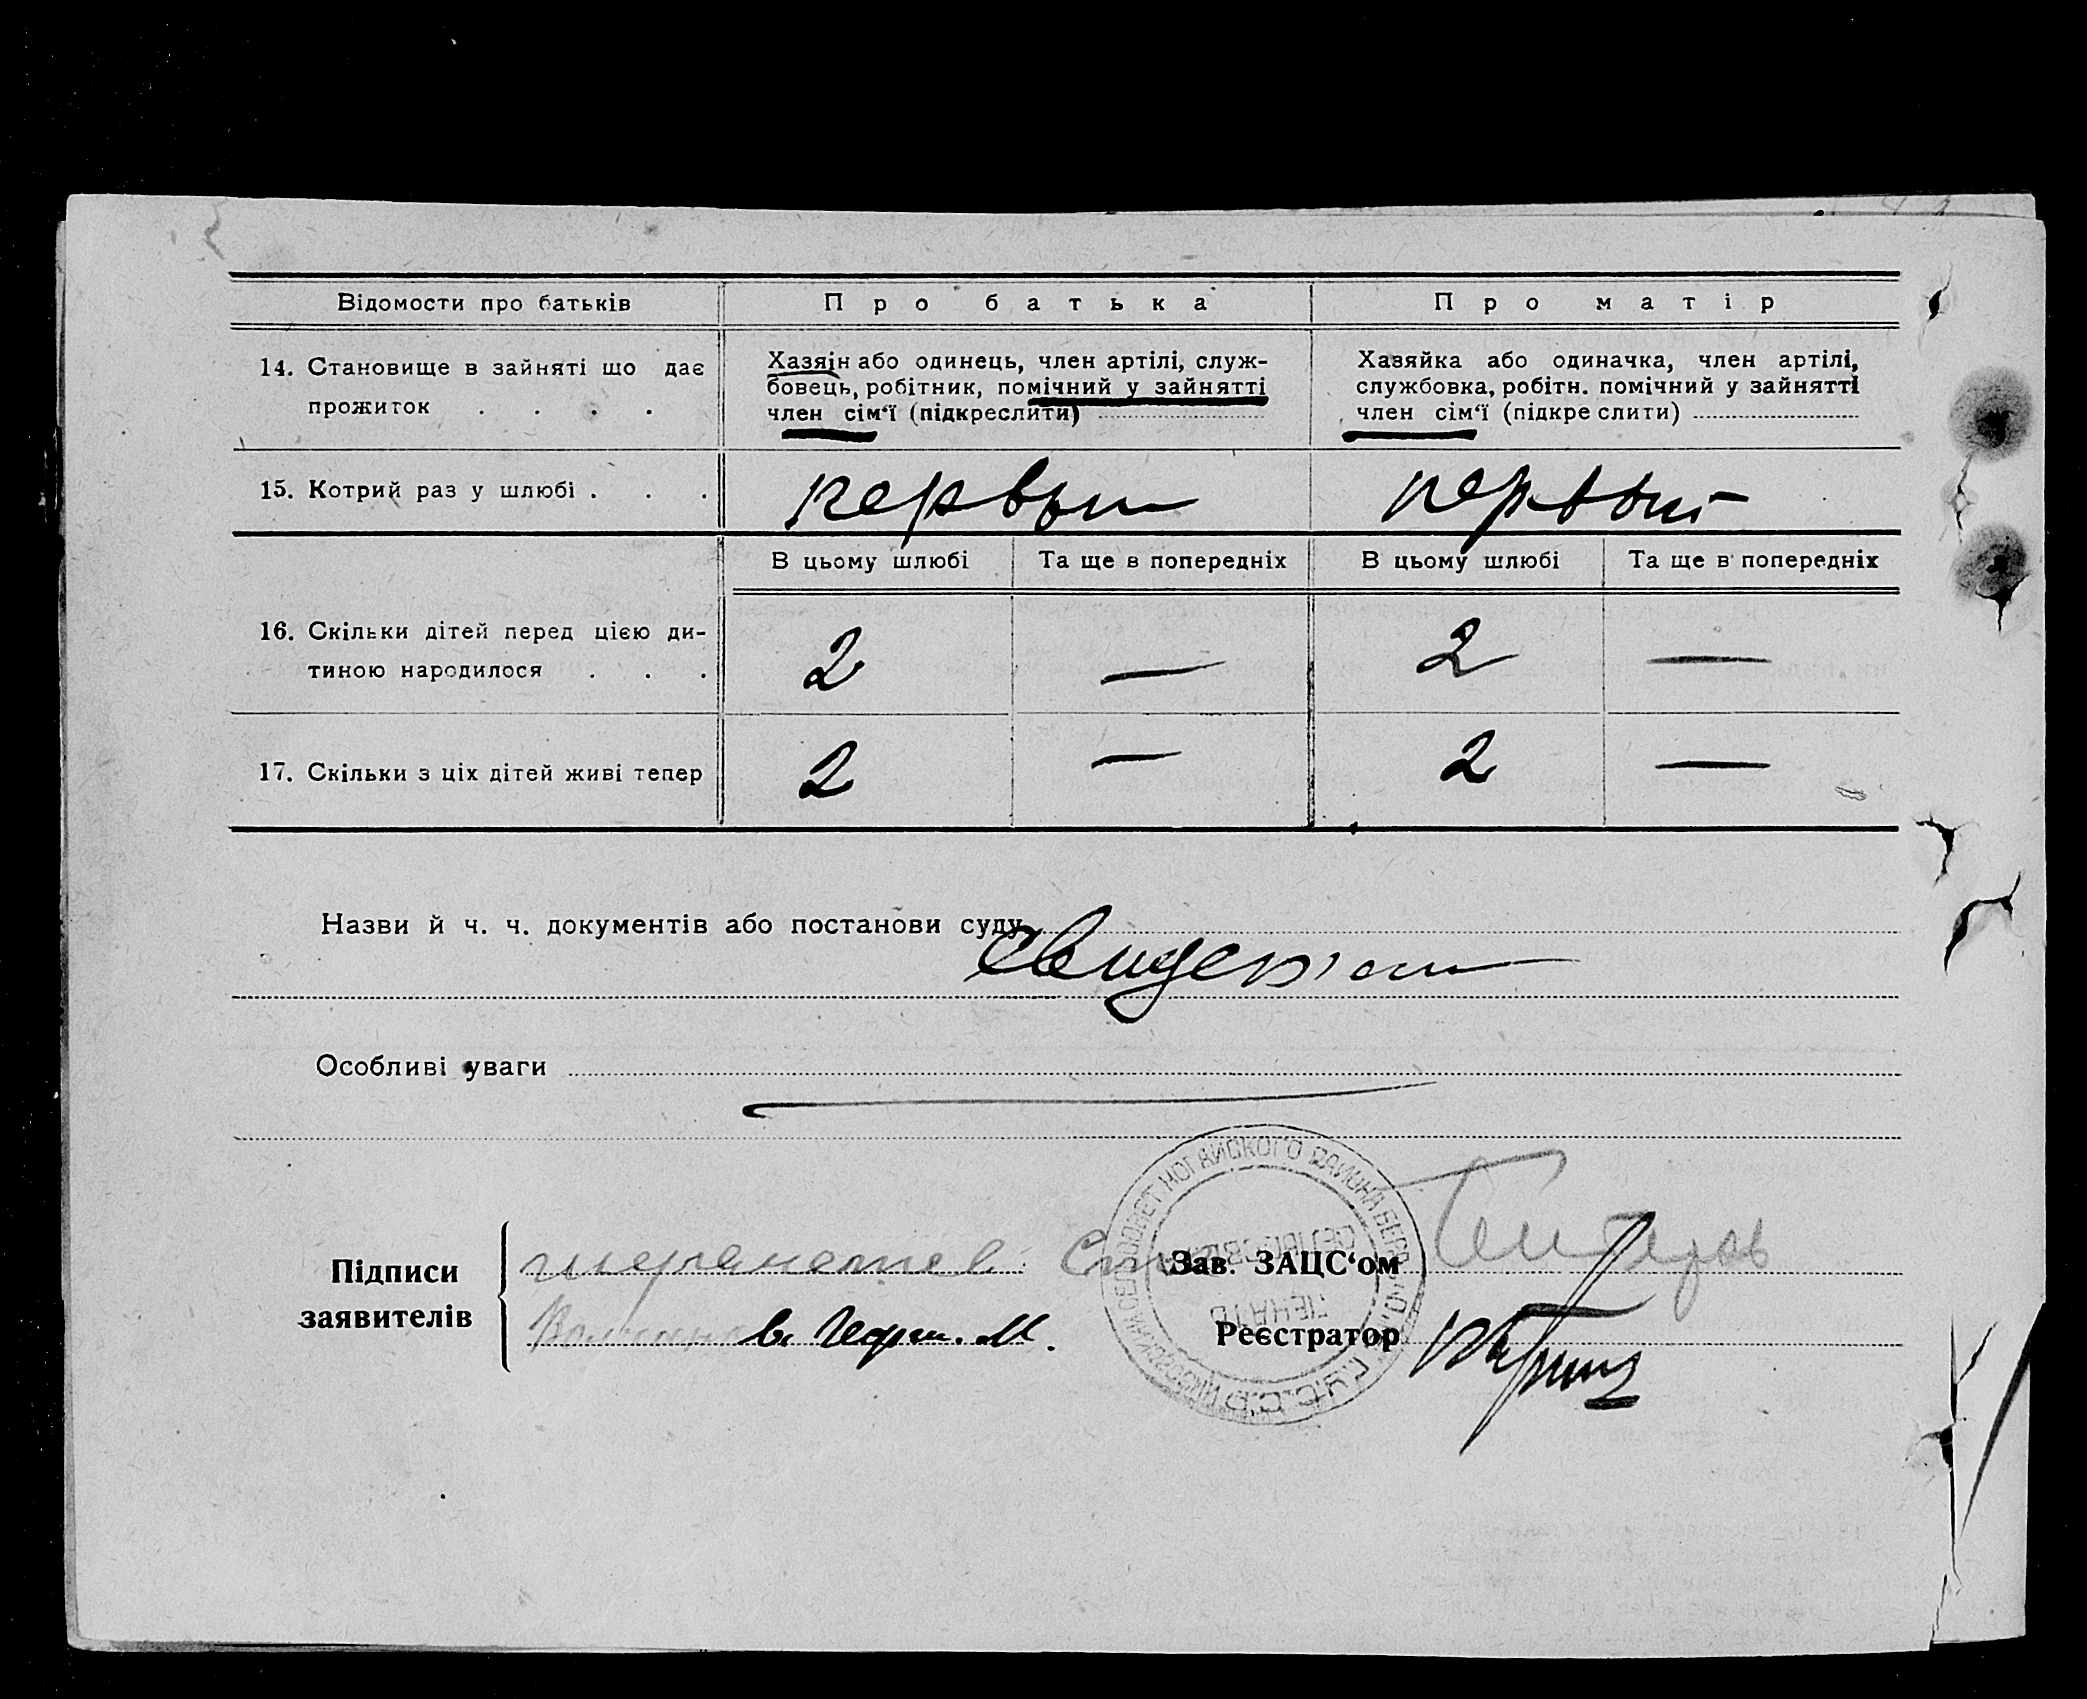 Відомости про батьків
Про батька
Про матір
14. Становище в зайняті що дає
прожиток . . . .
Хазяїн або одинець, член артілі, служ-
бовець, робітник, помічний у зайнятті
член сім‘ї (підкреслити)
Хазяйка або одиначка, член артілі,
службовка, робітн. помічний у зайнятті
член сім‘ї (підкреслити)
15. Котрий раз у шлюбі . . .
первый
первый
В цьому шлюбі
Та ще в попередніх
В цьому шлюбі
Та ще в попередніх
16. Скільки дітей перед цією ди-
тиною народилося . . .
2
—
2
—
17. Скільки з ціх дітей живі тепер
2
—
2
—
Назви й ч. ч. документів або постанови суду
Особливі уваги
Підписи
заявителів
Зав. ЗАЦС‘ом
Реєстратор
НОГАЙСКОГО РАЙОНА
У.С.С.Р.
ПЕЧАТЬ